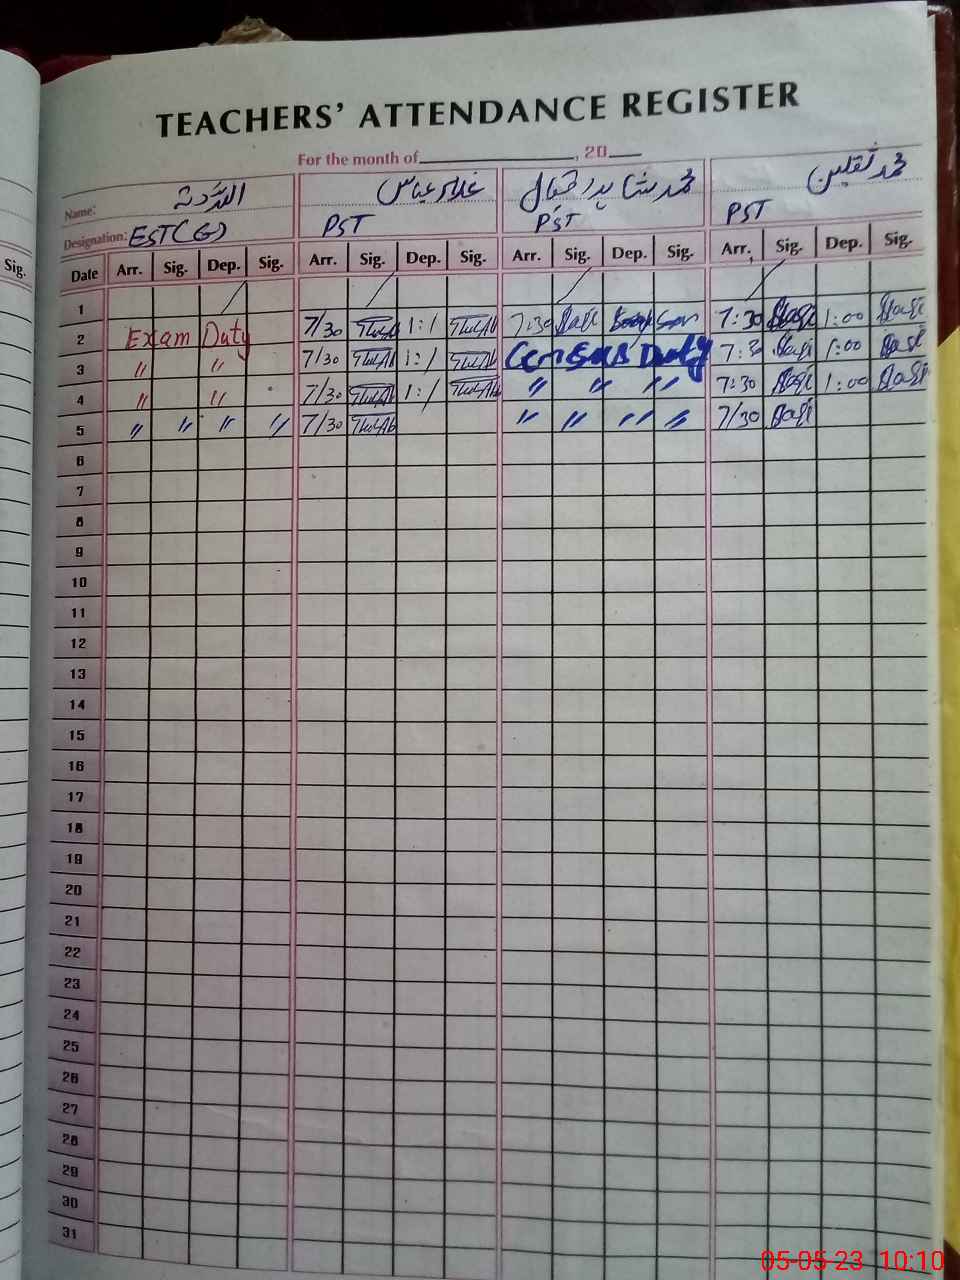 TEACHERS' ATTENDANCE REGISTER
For the month of , 20
Name: اللہ دتہ غلام عباس محمد شاہد اقبال محمد ثقلین
Designation: EST(G) PST PST PST
Sig.
Date Arr. Sig. Dep. Sig. Arr. Sig. Dep. Sig. Arr. Sig. Dep. Sig. Arr. Sig. Dep. Sig.
1
2 Exam Duty 7/30 1:1 7:30 7:30 1:00
3 " " 7/30 1:1 Census Duty 7:30 1:00
4 " " 7/30 1:1 " " " 7:30 1:00
5 " " " " 7/30 " " " " 7/30
6
7
8
9
10
11
12
13
14
15
16
17
18
19
20
21
22
23
24
25
26
27
28
29
30
31
05-05-23 10:10